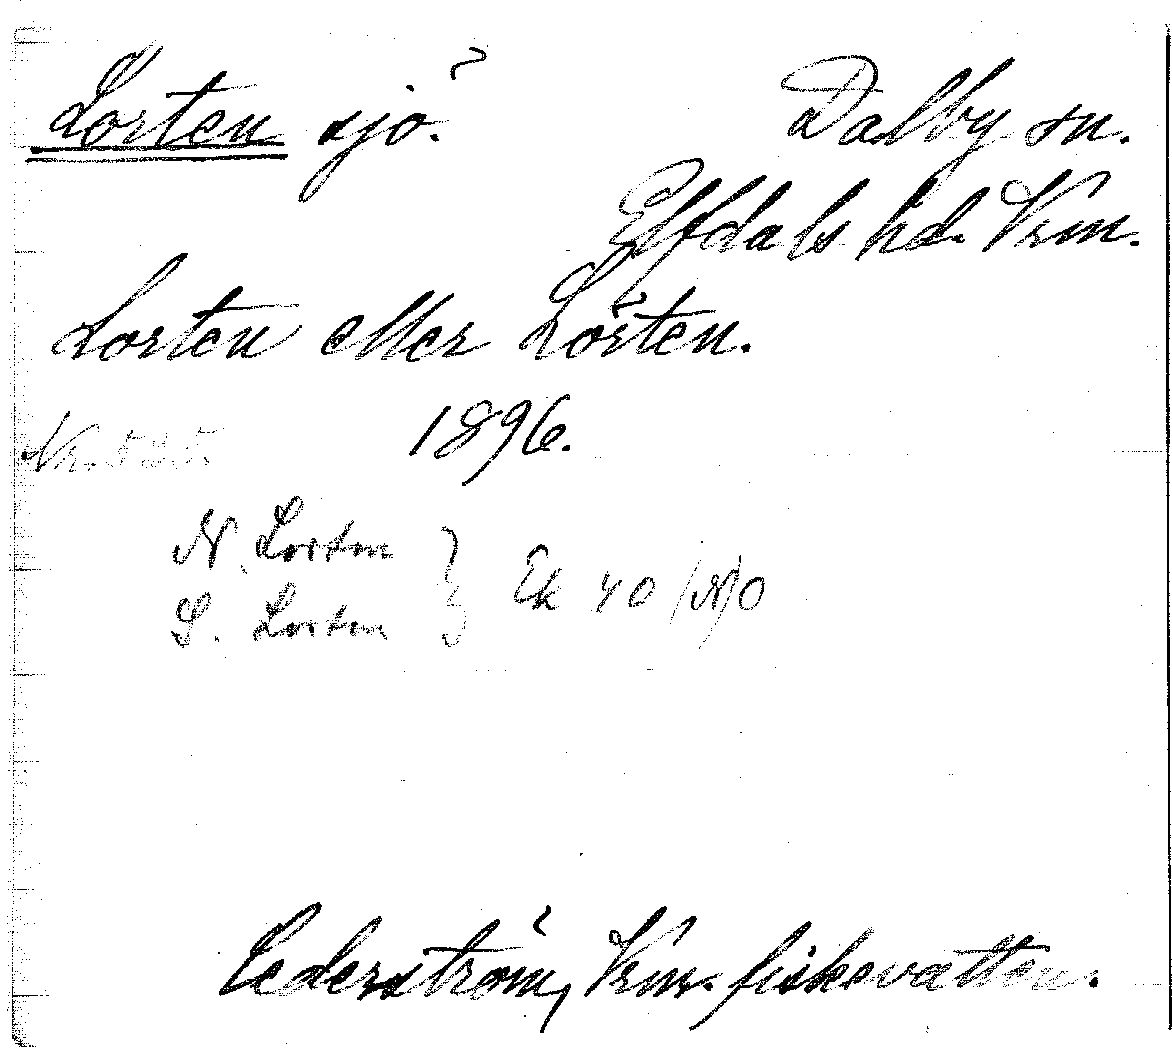 Lorten sjö.
Dalby sn.
Elfdals hd. Vrm.
Lorten eller Lörten.
1896.
N. Lorten
S. Lorten } Ek 40 (N) O
Cederström, Vrm. fiskevatten.